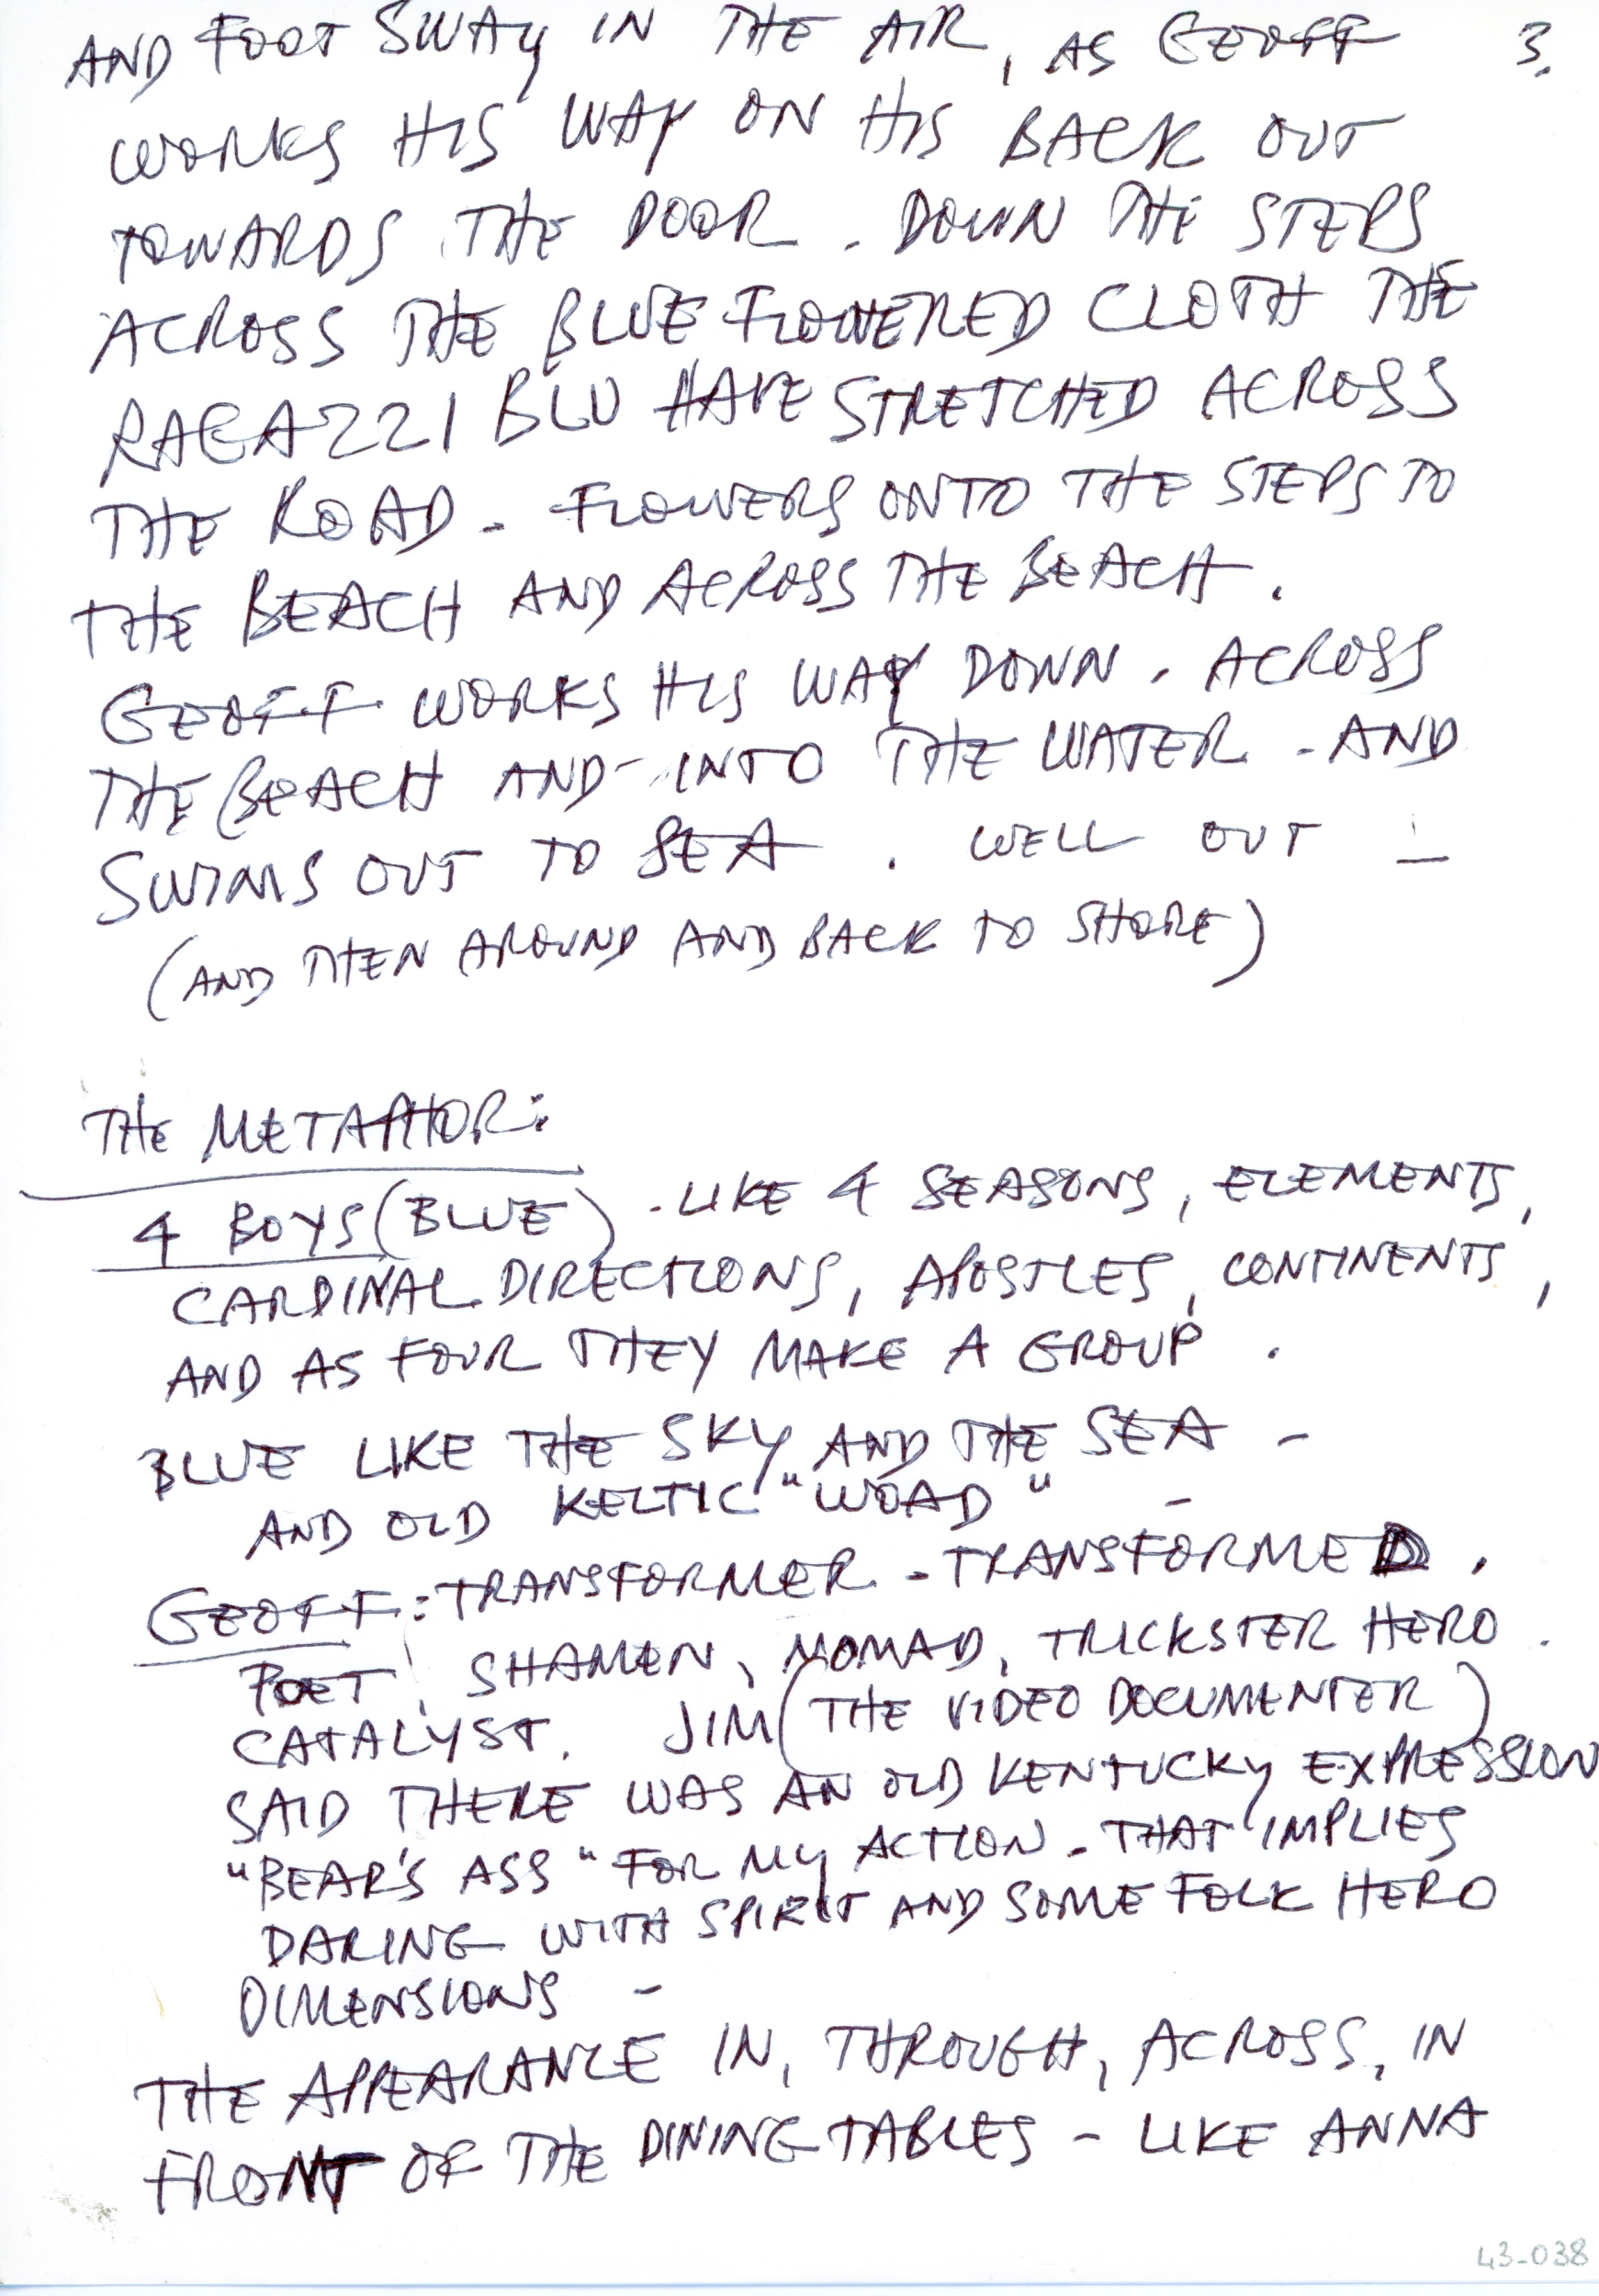 AND FOOT SWAY IN THE AIR, AS GEOFF 3.
WORKS HIS WAY ON HIS BACK OUT
TOWARDS THE DOOR. DOWN THE STEPS
ACROSS THE BLUE FLOWERED CLOTH THE
RAGAZZI BLU HAVE STRETCHED ACROSS
THE ROAD - FLOWERS ONTO THE STEPS TO
THE BEACH AND ACROSS THE BEACH.
GEOFF WORKS HIS WAY DOWN. ACROSS
THE BEACH AND INTO THE WATER - AND
SWIMS OUT TO SEA. WELL OUT —
(AND THEN AROUND AND BACK TO SHORE)
THE METAPHOR:
4 BOYS (BLUE). LIKE 4 SEASONS, ELEMENTS,
CARDINAL DIRECTIONS, APOSTLES, CONTINENTS,
AND AS FOUR THEY MAKE A GROUP.
BLUE LIKE THE SKY AND THE SEA -
AND OLD KELTIC "WOAD" -
GEOFF: TRANSFORMER - TRANSFORMED.
POET, SHAMEN, NOMAD, TRICKSTER HERO.
CATALYST. JIM (THE VIDEO DOCUMENTER)
SAID THERE WAS AN OLD KENTUCKY EXPRESSION
"BEAR'S ASS" FOR MY ACTION - THAT IMPLIES
DARING WITH SPIRIT AND SOME FOLK HERO
DIMENSIONS -
THE APPEARANCE IN, THROUGH, ACROSS, IN
FRONT OF THE DINING TABLES - LIKE ANNA
43-038